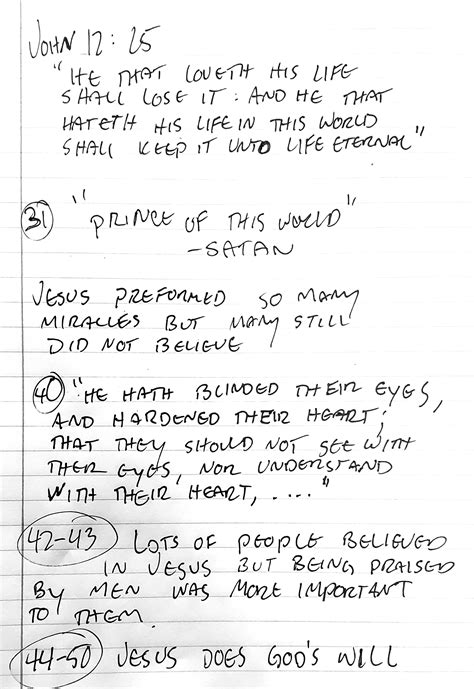 JOHN 12:25
"HE THAT LOVETH HIS LIFE
SHALL LOSE IT: AND HE THAT
HATETH HIS LIFE IN THIS WORLD
SHALL KEEP IT UNTO LIFE ETERNAL"
31 "PRINCE OF THIS WORLD"
-SATAN
JESUS PREFORMED SO MANY
MIRACLES BUT MANY STILL
DID NOT BELIEVE
40 "HE HATH BLINDED THEIR EYES,
AND HARDENED THEIR HEART;
THAT THEY SHOULD NOT SEE WITH
THEIR EYES, NOR UNDERSTAND
WITH THEIR HEART, ...."
42-43 LOTS OF PEOPLE BELIEVED
IN JESUS BUT BEING PRAISED
BY MEN WAS MORE IMPORTANT
TO THEM.
44-50 JESUS DOES GOD'S WILL